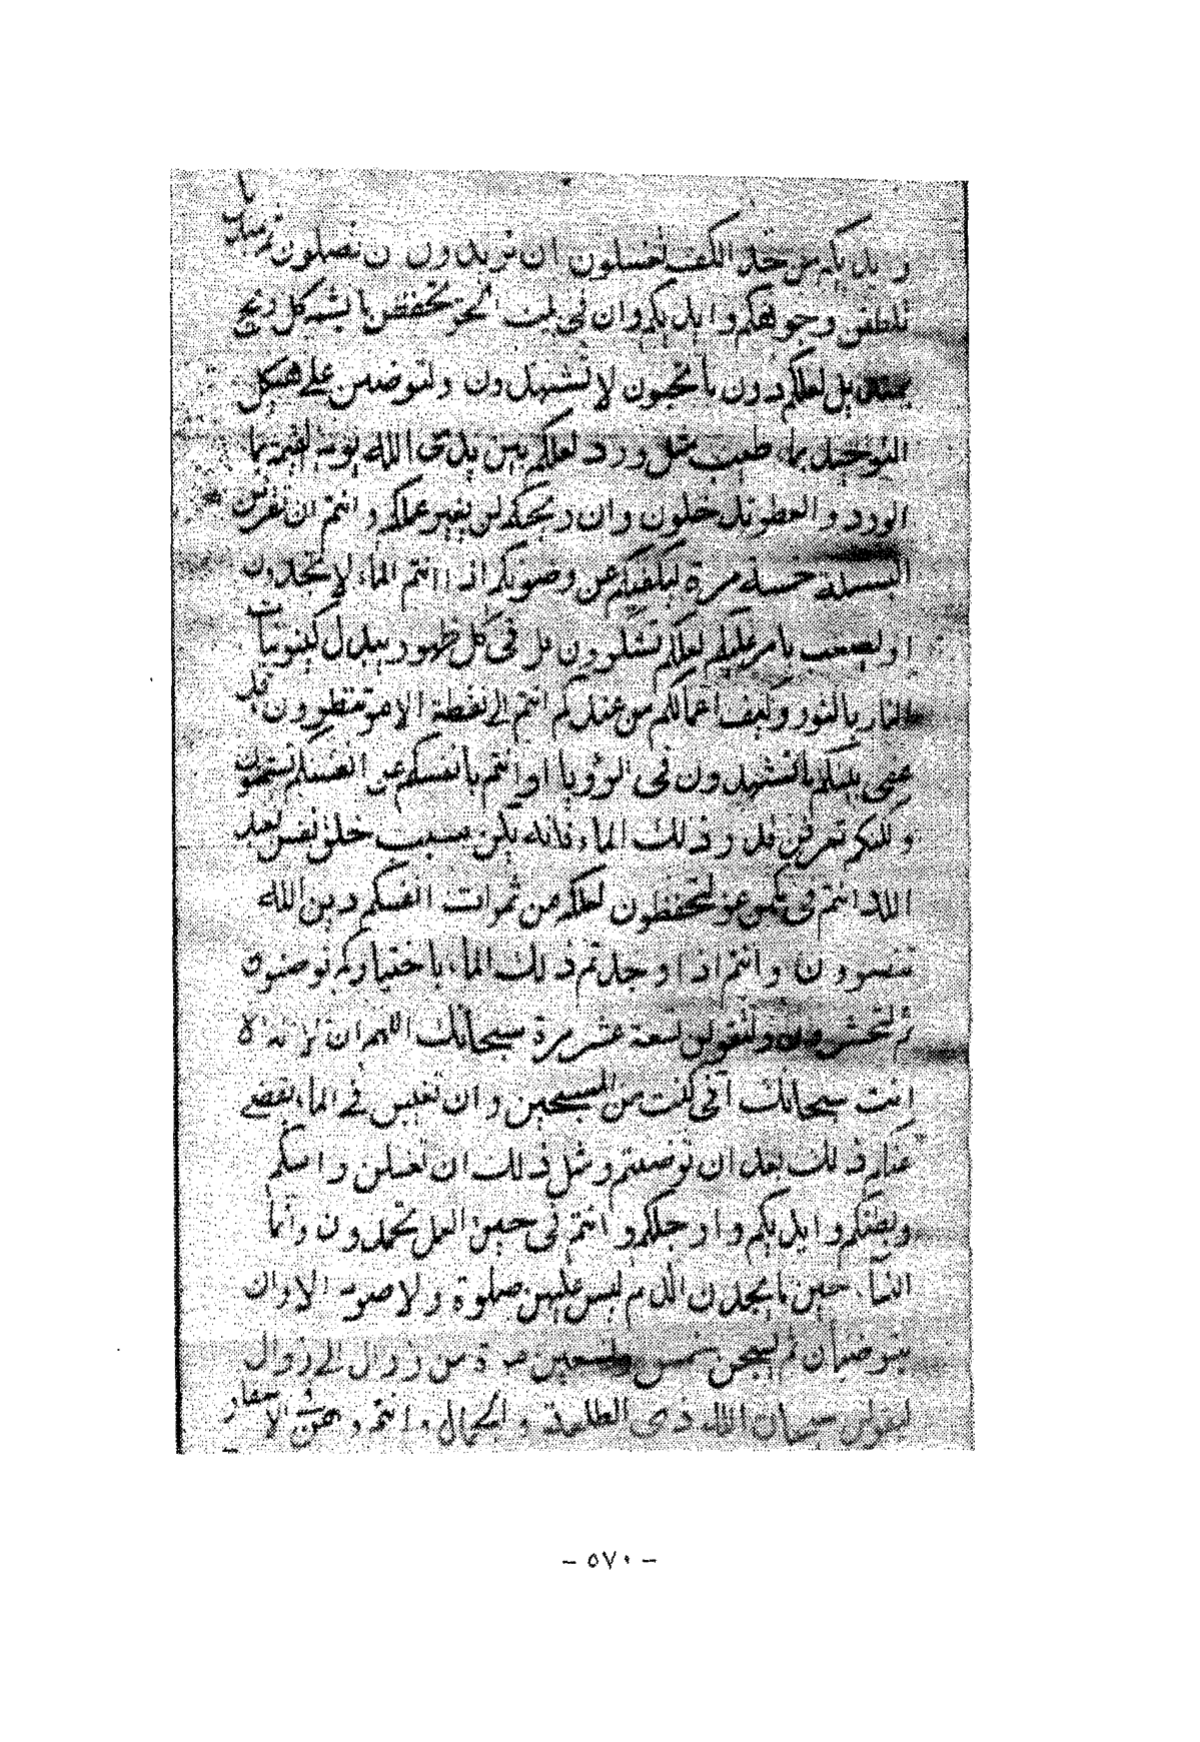 وايديكم من حد الكف تغسلون ان تريدون ان تصلون ثم بمنديل
تلطفن وجوهكم وايديكم وان في بيت الحر تحفظن ما يشم كل ريح
بمنديل لعلكم دون ما تحبون لا تشهدون ولتوضئن على هيكل
التوحيد بماء طيب مثل ورد لعلكم بين يدي الله يوم القيمة بماء
الورد والعطر تدخلون وان ريحكم لن يغير عملكم وانتم ان تقرئن
البسملة خمسة مرة ليكفيكم عن وضوئكم اذا انتم الماء لا تجدون
او يصعب بامر عليكم لعلكم تشكرون قل في كل ظهور يبدل كينونيات
النار بالنور وكيف اعمالكم من عندكم انتم الى نقطة الامر تنتظرون قد
عفي عليكم ما تشهدون في الرؤيا او انتم بانفسكم عن انفسكم تستمنيون
ولكنكم تعرفن قدر ذلك الماء فانه يكن سبب خلق نفس يعبد
الله انتم في مكمن عز لتحفظون لعلكم من ثمرات انفسكم دين الله
تنصرون وانتم اذا وجدتم ذلك الماء باختياركم توضئون
ثم لتسجدون ولتقولن تسعة عشر مرة سبحانك اللهم ان لا اله الا
انت سبحانك اني كنت من المسبحين وان تغمس في الماء يقضي
عنكم ذلك بعد ان توضئتم ومثل ذلك ان تغسلن راسكم
وبطنكم وايديكم وارجلكم وانتم في حين العمل تحمدون وانما
النساء حين ما يجدن الدم ليس عليهن صلوة ولا صوم الا وان
يتوضئان ثم ليسبحن خمس وتسعين مرة من زوال الى زوال
ليقولن سبحان الله ذي الطلعة والجمال وانتم وهن في الاسفار
- ٥٧٠ -